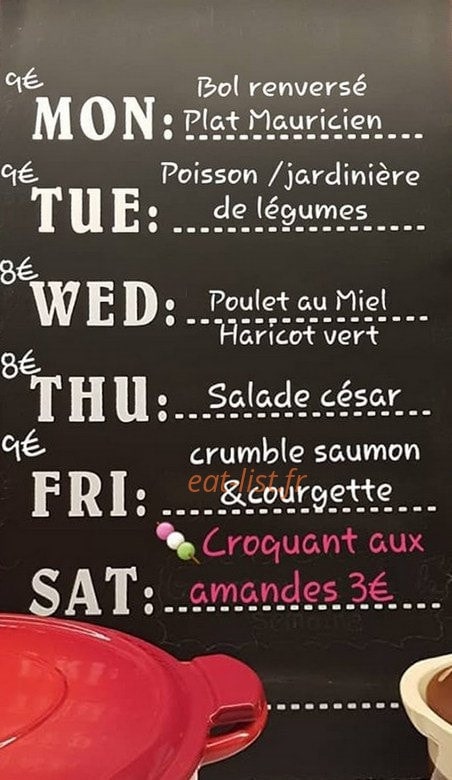 9€
Bol renversé
MON: Plat Mauricien
9€
Poisson /jardinière
TUE: de légumes
8€
WED: Poulet au Miel
Haricot vert
8€
THU: Salade césar
9€
crumble saumon
eat-list.fr
FRI: &courgette
Croquant aux
SAT: amandes 3€